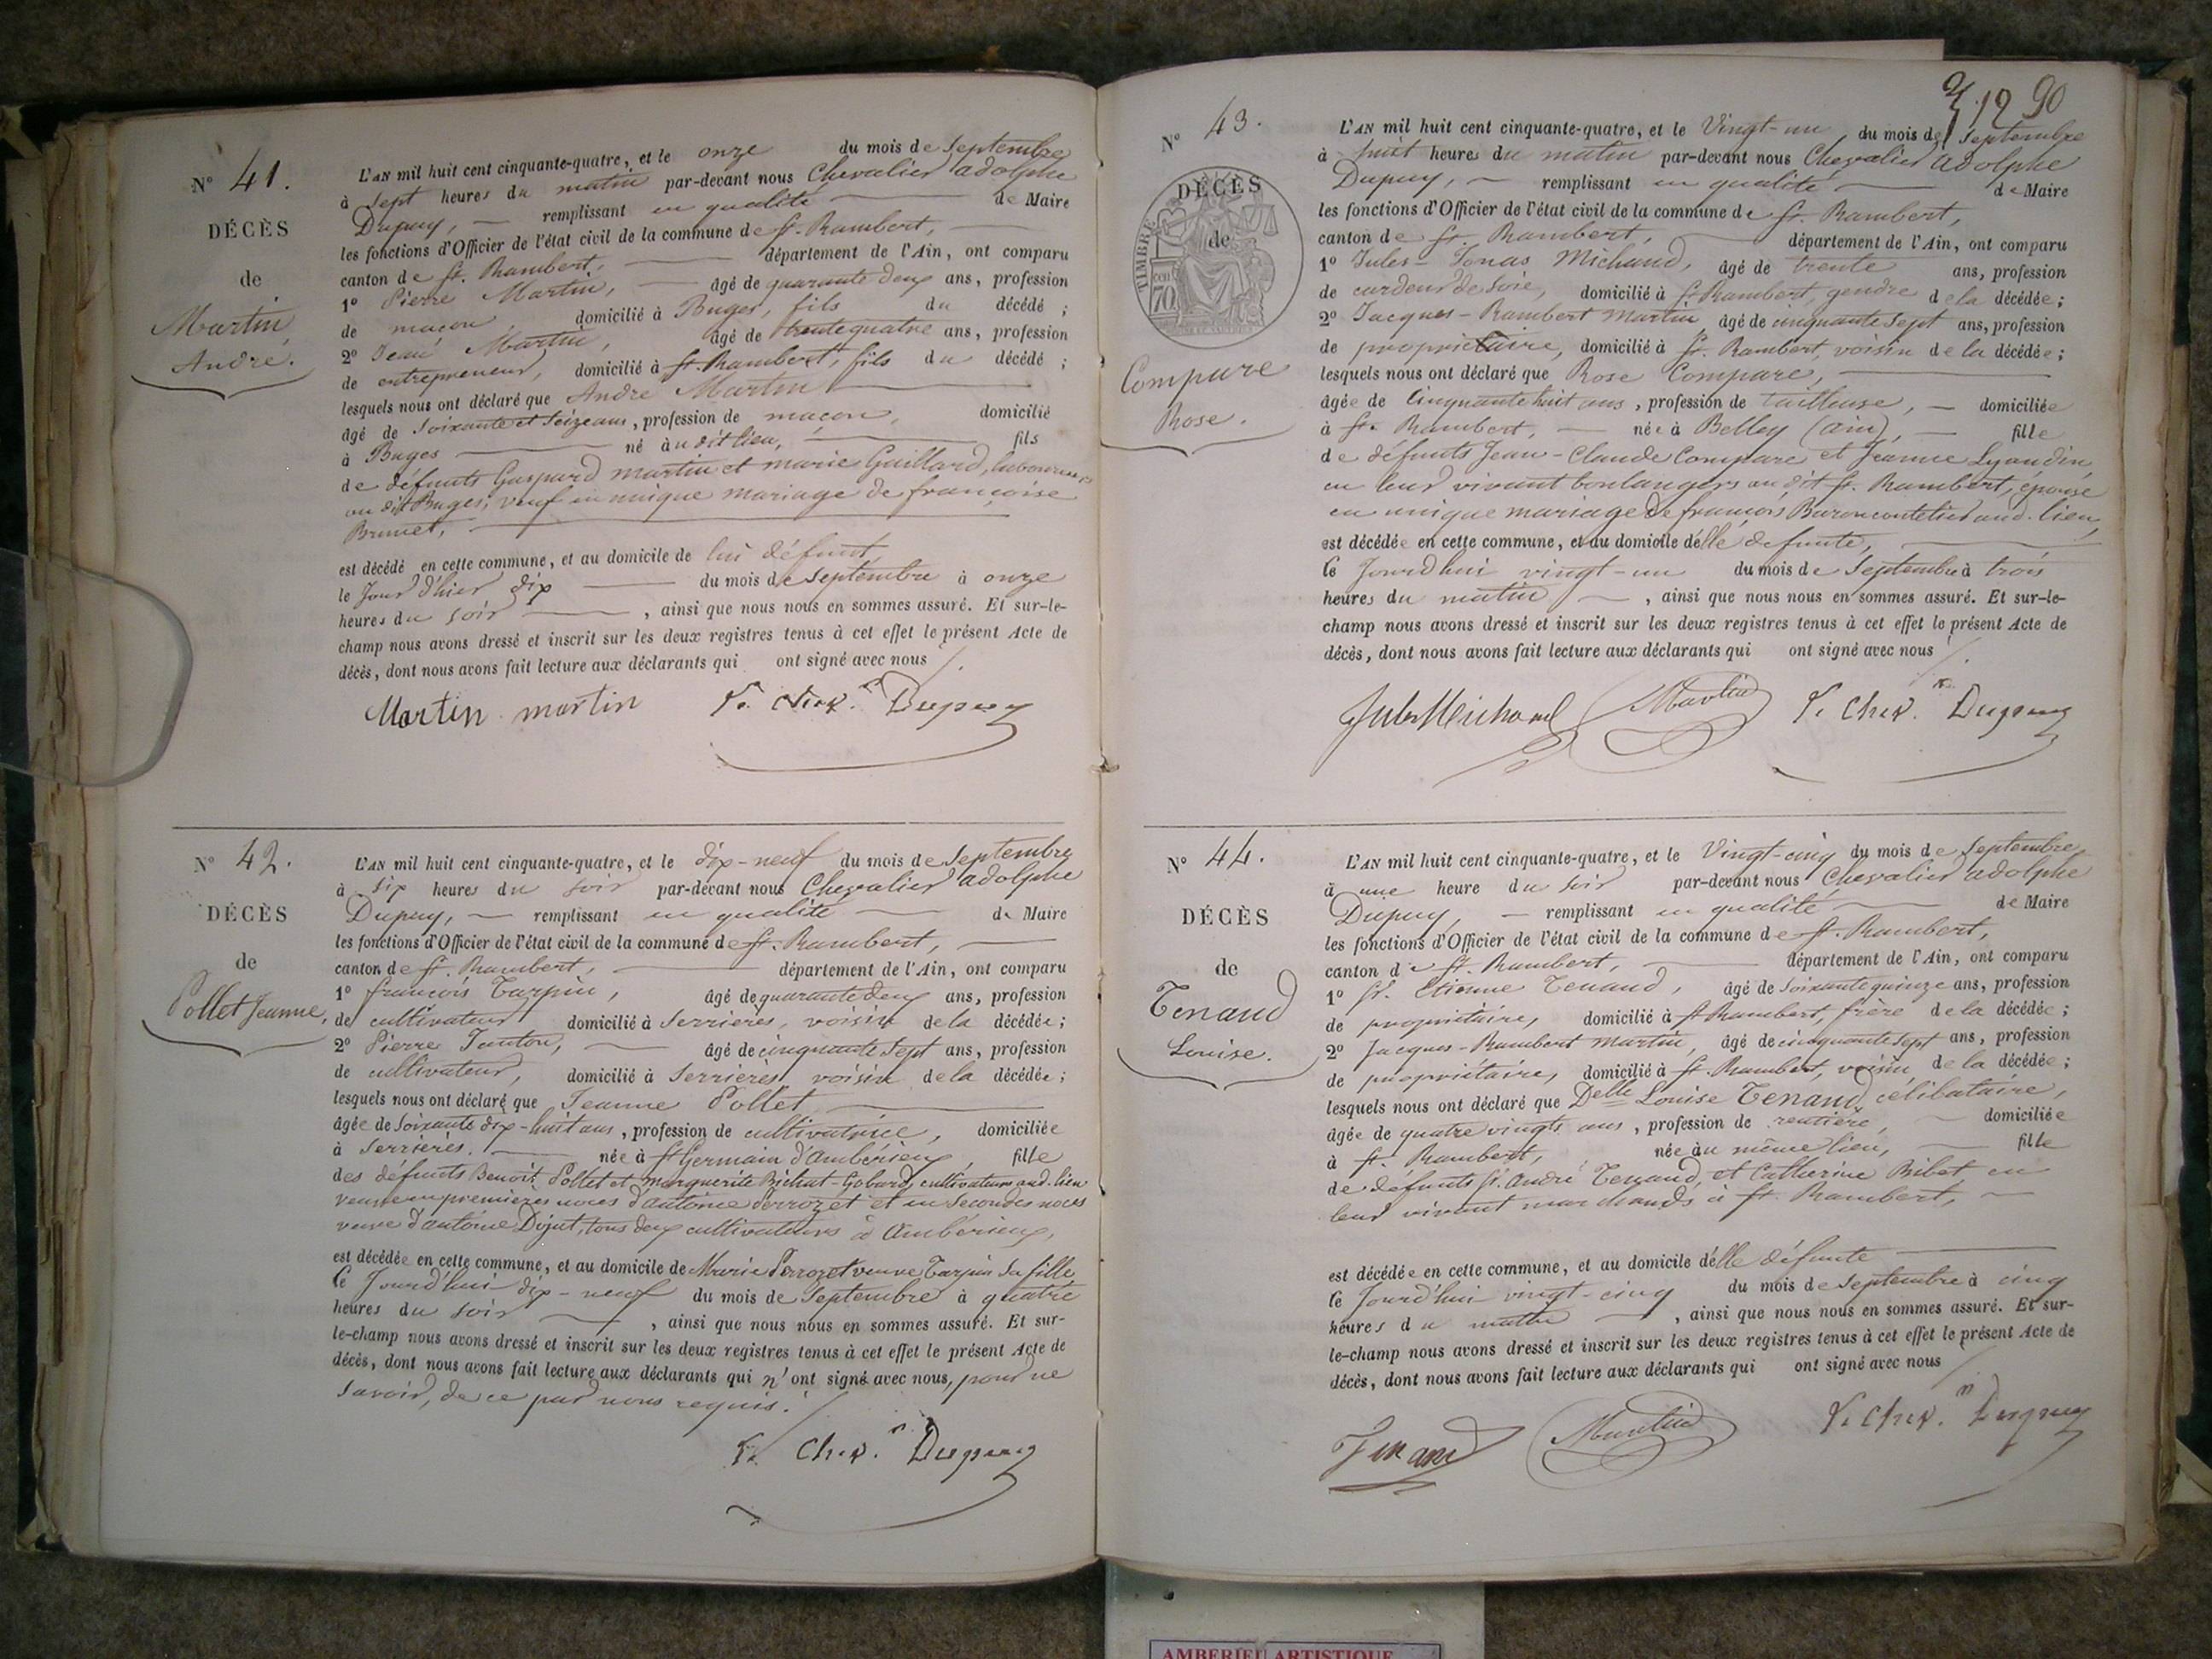 N° 41.
DÉCÈS
de
Martin
André.
L'AN mil huit cent cinquante-quatre, et le onze du mois de Septembre
à sept heures du matin par-devant nous Chevalier adolphe
Dupuy, remplissant en qualité de Maire
les fonctions d'Officier de l'état civil de la commune de St. Rambert,
canton de St. Rambert, département de l'Ain, ont comparu
1° Pierre Martin, âgé de quarante deux ans, profession
de maçon, domicilié à Buges, fils du décédé ;
2° Jean Martin, âgé de trente quatre ans, profession
de entrepreneur, domicilié à St. Rambert, fils du décédé ;
lesquels nous ont déclaré que André Martin
âgé de Soixante et Seize ans, profession de maçon, domicilié
à Buges né au dit lieu, fils
de défunts Gaspard martin et marie Guillard, laboureurs
au dit Buges; veuf en unique mariage de françoise
Brunet,
est décédé en cette commune, et au domicile de lui défunt,
le Jour d'hier dix du mois de Septembre à onze
heures du soir, ainsi que nous nous en sommes assuré. Et sur-le-
champ nous avons dressé et inscrit sur les deux registres tenus à cet effet le présent Acte de
décès, dont nous avons fait lecture aux déclarants qui ont signé avec nous
Martin martin Le Chev. Dupuy
N° 42.
DÉCÈS
de
Pollet Jeanne,
L'AN mil huit cent cinquante-quatre, et le dix-neuf du mois de Septembre
à six heures du soir par-devant nous Chevalier adolphe
Dupuy, remplissant en qualité de Maire
les fonctions d'Officier de l'état civil de la commune de St. Rambert,
canton de St. Rambert, département de l'Ain, ont comparu
1° françois Tarpin, âgé de quarante deux ans, profession
de cultivateur domicilié à Serrières, voisin de la décédée ;
2° Pierre Tenton, âgé de cinquante Sept ans, profession
de cultivateur, domicilié à Serrières voisin de la décédée ;
lesquels nous ont déclaré que Jeanne Pollet
âgée de Soixante dix-huit ans, profession de cultivatrice, domiciliée
à Serrières. née à St Germain d'Ambérieux, fille
des défunts Benoit Pollet et Marguerite Bichat-Gobard, cultivateurs aud. lieu
veuve en premières noces d'antoine Perrozet et en Secondes noces
veuve d'antoine Dizut, tous deux cultivateurs à Ambérieux,
est décédée en cette commune, et au domicile de Marie Perrozet veuve Tarpin Sa fille,
le Jourd'hui dix-neuf du mois de Septembre à quatre
heures du soir, ainsi que nous nous en sommes assuré. Et sur-
le-champ nous avons dressé et inscrit sur les deux registres tenus à cet effet le présent Acte de
décès, dont nous avons fait lecture aux déclarants qui n'ont signé avec nous, pour ne
savoir, de ce par nous requis.
Le Chev. Dupuy
12 90
N° 43.
DÉCÈS
de
TIMBRE
cen
70
Compare
Rose.
L'AN mil huit cent cinquante-quatre, et le Vingt-un du mois de Septembre
à huit heures du matin par-devant nous Chevalier adolphe
Dupuy, remplissant en qualité de Maire
les fonctions d'Officier de l'état civil de la commune de St. Rambert,
canton de St. Rambert, département de l'Ain, ont comparu
1° Jules-Jonas Michaud, âgé de trente ans, profession
de cardeur de Soie, domicilié à St Rambert, gendre de la décédée ;
2° Jacques-Rambert Martin, âgé de cinquante Sept ans, profession
de propriétaire, domicilié à St. Rambert, voisin de la décédée ;
lesquels nous ont déclaré que Rose Compare,
âgée de Cinquante huit ans, profession de tailleuse, domiciliée
à St. Rambert, née à Belley (ain), fille
de défunts Jean-Claude Compare et Jeanne Lyaudin,
en leur vivant boulangers au dit St. Rambert, épouse
en unique mariage de françois Baron coutelier aud. lieu,
est décédée en cette commune, et au domicile d'elle défunte,
le Jourd'hui vingt-un du mois de Septembre à trois
heures du matin, ainsi que nous nous en sommes assuré. Et sur-le-
champ nous avons dressé et inscrit sur les deux registres tenus à cet effet le présent Acte de
décès, dont nous avons fait lecture aux déclarants qui ont signé avec nous
Jules Michaud Martin Le Chev. Dupuy
N° 44.
DÉCÈS
de
Tenand
Louise.
L'AN mil huit cent cinquante-quatre, et le Vingt-cinq du mois de Septembre
à une heure du soir par-devant nous Chevalier adolphe
Dupuy, remplissant en qualité de Maire
les fonctions d'Officier de l'état civil de la commune de St. Rambert,
canton de St. Rambert, département de l'Ain, ont comparu
1° Sr. Etienne Tenand, âgé de Soixante quinze ans, profession
de propriétaire, domicilié à St Rambert, frère de la décédée ;
2° Jacques-Rambert Martin, âgé de cinquante Sept ans, profession
de propriétaire, domicilié à St. Rambert, voisin de la décédée ;
lesquels nous ont déclaré que Delle Louise Tenand, célibataire,
âgée de quatre vingts ans, profession de rentière, domiciliée
à St. Rambert, née au même lieu, fille
de défunts Sr. André Tenand, et Catherine Bibet, en
leur vivant marchands à St. Rambert,
est décédée en cette commune, et au domicile d'elle défunte
le Jourd'hui vingt-cinq du mois de Septembre à cinq
heures du matin, ainsi que nous nous en sommes assuré. Et sur-
le-champ nous avons dressé et inscrit sur les deux registres tenus à cet effet le présent Acte de
décès, dont nous avons fait lecture aux déclarants qui ont signé avec nous
Tenand Martin Le Chev. Dupuy
AMBERIEU ARTISTIQUE